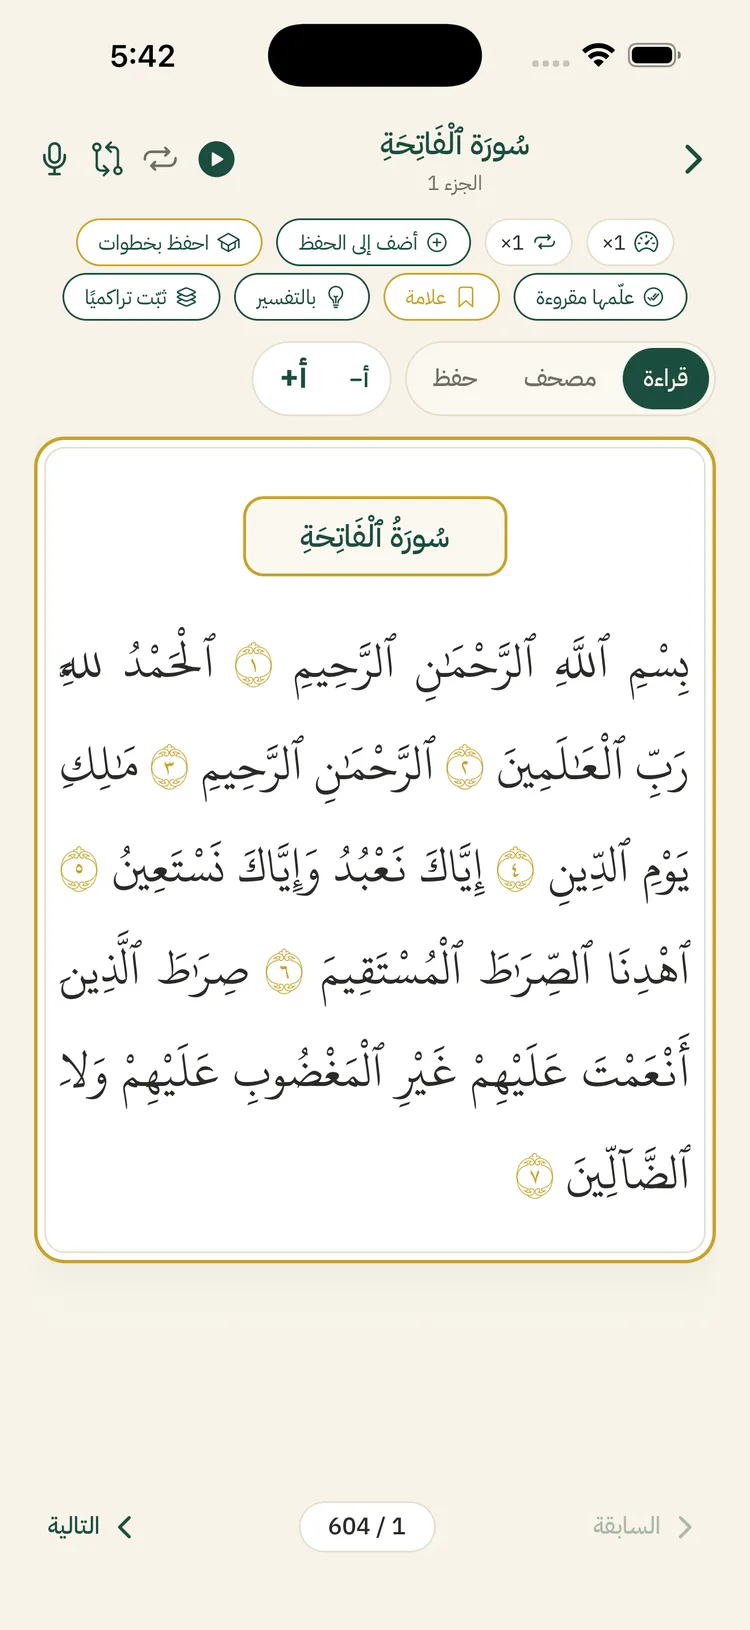 5:42
سُورَة ٱلْفَاتِحَةِ
الجزء 1
×1
×1
أضف إلى الحفظ
احفظ بخطوات
علّمها مقروءة
علامة
بالتفسير
ثبّت تراكميًا
قراءة
مصحف
حفظ
أ−
أ+
سُورَةُ ٱلْفَاتِحَةِ
بِسْمِ ٱللَّهِ ٱلرَّحْمَـٰنِ ٱلرَّحِيمِ ١ ٱلْحَمْدُ لِلَّهِ
رَبِّ ٱلْعَـٰلَمِينَ ٢ ٱلرَّحْمَـٰنِ ٱلرَّحِيمِ ٣ مَـٰلِكِ
يَوْمِ ٱلدِّينِ ٤ إِيَّاكَ نَعْبُدُ وَإِيَّاكَ نَسْتَعِينُ ٥
ٱهْدِنَا ٱلصِّرَٰطَ ٱلْمُسْتَقِيمَ ٦ صِرَٰطَ ٱلَّذِينَ
أَنْعَمْتَ عَلَيْهِمْ غَيْرِ ٱلْمَغْضُوبِ عَلَيْهِمْ وَلَا
ٱلضَّآلِّينَ ٧
السابقة
604 / 1
التالية